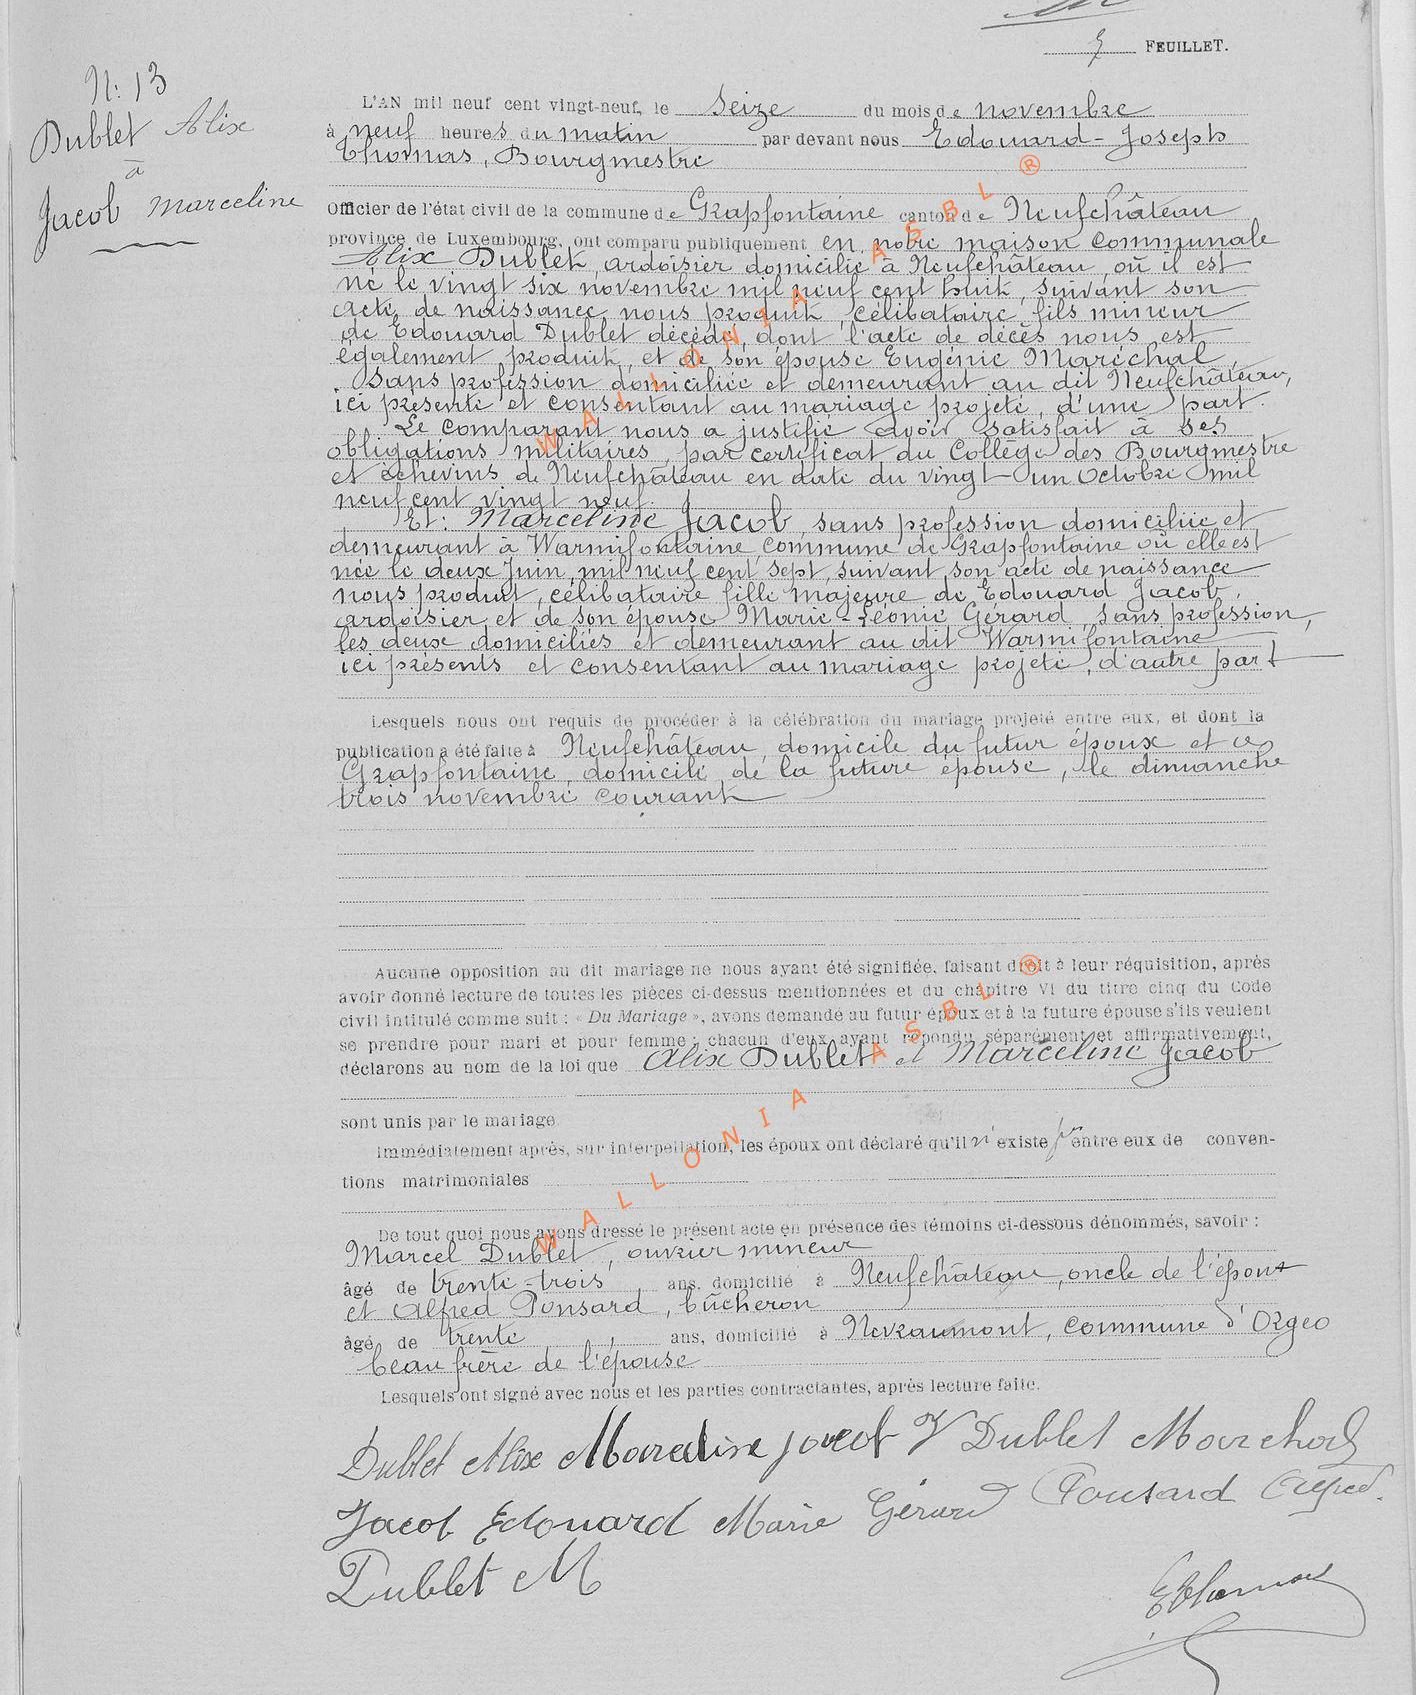 7 FEUILLET.
N: 13
Dublet Alix
à
Jacob Marceline
L'AN mil neuf cent vingt-neuf, le Seize du mois de novembre
à neuf heures du matin par devant nous Edouard-Joseph
Thomas, Bourgmestre
Officier de l'état civil de la commune de Grapfontaine canton de Neufchâteau
province de Luxembourg, ont comparu publiquement en notre maison communale
Alix Dublet, ardoisier domicilié à Neufchâteau, où il est
né le vingt six novembre mil neuf cent huit, suivant son
acte de naissance nous produit, célibataire, fils mineur
de Edouard Dublet décédé, dont l'acte de décès nous est
également produit, et de son épouse Eugénie Maréchal,
sans profession domiciliée et demeurant au dit Neufchâteau,
ici présente et consentant au mariage projeté, d'une part.
Le comparant nous a justifié avoir satisfait à ses
obligations militaires, par certificat du Collège des Bourgmestre
et échevins de Neufchâteau en date du vingt-un Octobre mil
neuf cent vingt neuf.
Et: Marceline Jacob, sans profession domiciliée et
demeurant à Warmifontaine, commune de Grapfontaine où elle est
née le deux Juin, mil neuf cent sept, suivant son acte de naissance
nous produit, célibataire fille majeure de Edouard Jacob,
ardoisier et de son épouse Marie-Léonie Gérard, sans profession,
les deux domiciliés et demeurant au dit Warmifontaine
ici présents et consentant au mariage projeté, d'autre part
Lesquels nous ont requis de procéder à la célébration du mariage projeté entre eux, et dont la
publication a été faite à Neufchâteau, domicile du futur époux et à
Grapfontaine, domicile de la future épouse, le dimanche
trois novembre courant
Aucune opposition au dit mariage ne nous ayant été signifiée, faisant droit à leur réquisition, après
avoir donné lecture de toutes les pièces ci-dessus mentionnées et du chapitre VI du titre cinq du Code
civil intitulé comme suit : « Du Mariage », avons demandé au futur époux et à la future épouse s'ils veulent
se prendre pour mari et pour femme ; chacun d'eux ayant répondu séparément et affirmativement,
déclarons au nom de la loi que Alix Dublet et Marceline Jacob
sont unis par le mariage.
Immédiatement après, sur interpellation, les époux ont déclaré qu'il n'existe pas entre eux de conven-
tions matrimoniales
De tout quoi nous avons dressé le présent acte en présence des témoins ci-dessous dénommés, savoir :
Marcel Dublet, ouvrier mineur
âgé de trente-trois ans, domicilié à Neufchâteau, oncle de l'époux
et Alfred Ponsard, bûcheron
âgé de trente, ans, domicilié à Nevraumont, commune d'Orgeo
beau frère de l'épouse
Lesquels ont signé avec nous et les parties contractantes, après lecture faite.
Dublet Alix Marceline Jacob V Dublet Marechal
Jacob Edouard Marie Gérard Ponsard Alfred.
Dublet M
EThomas
WALLONIA ASBL ®
WALLONIA ASBL ®